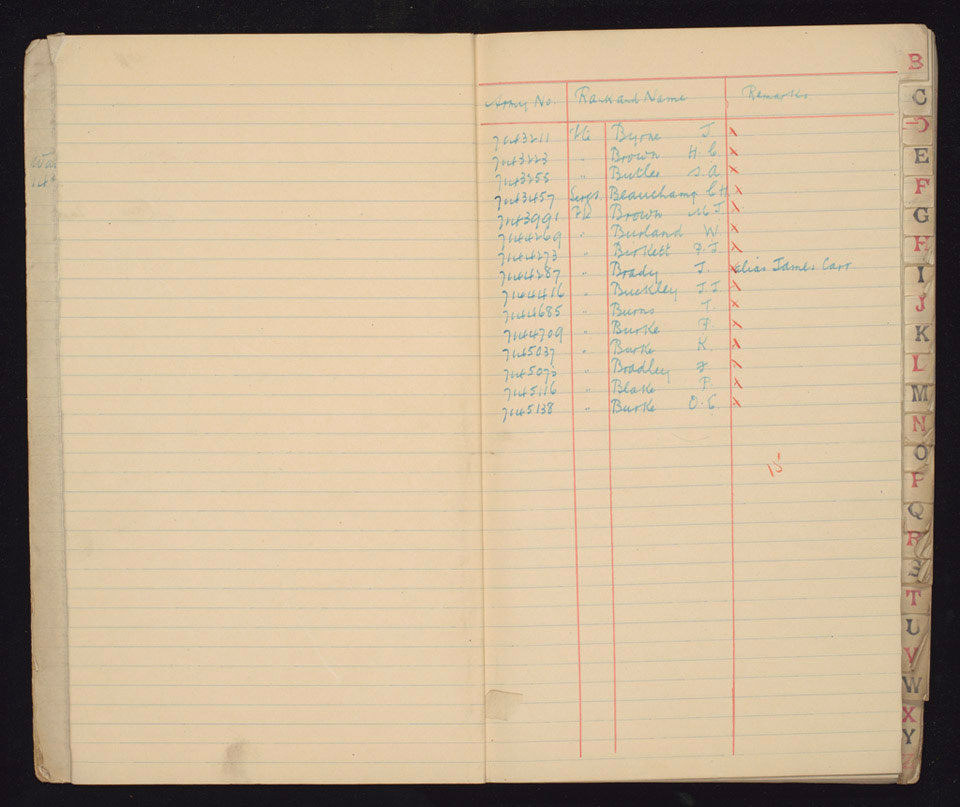 Army No. Rank and Name Remarks
7143211 Pte Byrne J. x
7143223 " Brown H. C. x
7143255 " Butler S. A. x
7143457 Sergt. Beauchamp C H x
7143991 Pte Brown M J. x
7144269 " Burland W. x
7144273 " Birkett F. J. x
7144287 " Brady J. x alias James Carr
7144416 " Buckley J. J. x
7144685 " Burns T. x
7144709 " Burke F. x
7145037 " Burke R. x
7145073 " Bradley J. x
7145116 " Blake P. x
7145138 " Burke O. C. x
15
B
C
D
E
F
G
H
I
J
K
L
M
N
O
P
Q
R
S
T
U
V
W
X
Y